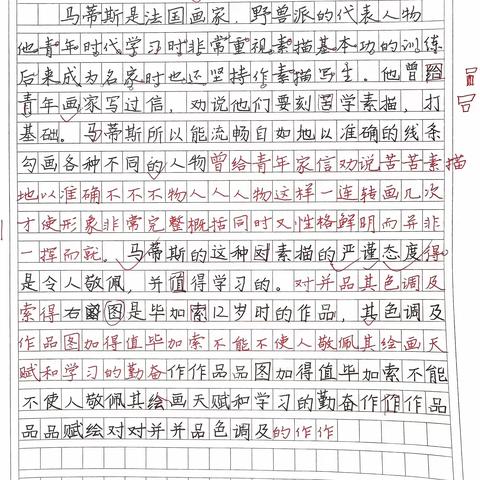 马蒂斯是法国画家，野兽派的代表人物
他青年时代学习时非常重视素描基本功的训练
后来成为名家时也还坚持作素描写生。他曾给
青年画家写过信，劝说他们要刻苦学素描，打
基础。马蒂斯所以能流畅自如地以准确的线条
勾画各种不同的人物曾给青年家信劝说苦苦素描
地以准确不不不物人人人物这样一连转画几次
才使形象非常完整概括同时又性格鲜明而并非
一挥而就。马蒂斯的这种因素描的严谨态度得
是令人敬佩，并值得学习的。对并品其色调及
索得右图是毕加索12岁时的作品，其色调及
作品图加得值毕加索不能不使人敬佩其绘画天
赋和学习的勤奋作作品品图加得值毕加索不能
不使人敬佩其绘画天赋和学习的勤奋作作作品
品品赋绘对对并并品色调及的作作